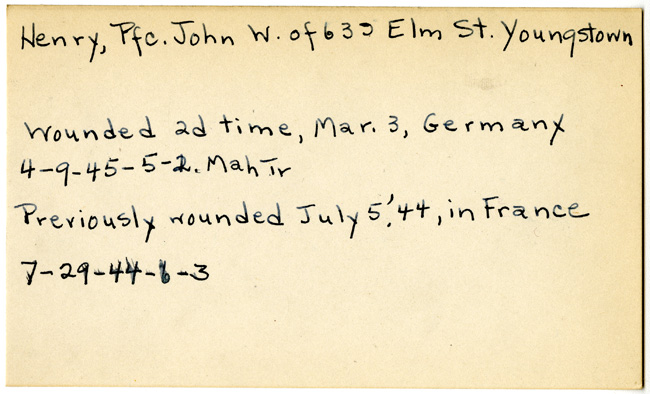 Henry, Pfc. John W. of Elm St. Youngstown
Wounded 2d time, Mar. 3, Germany
4-9-45-5-2. Mah Tr
Previously wounded July 5, '44, in France
7-29-44-6-3